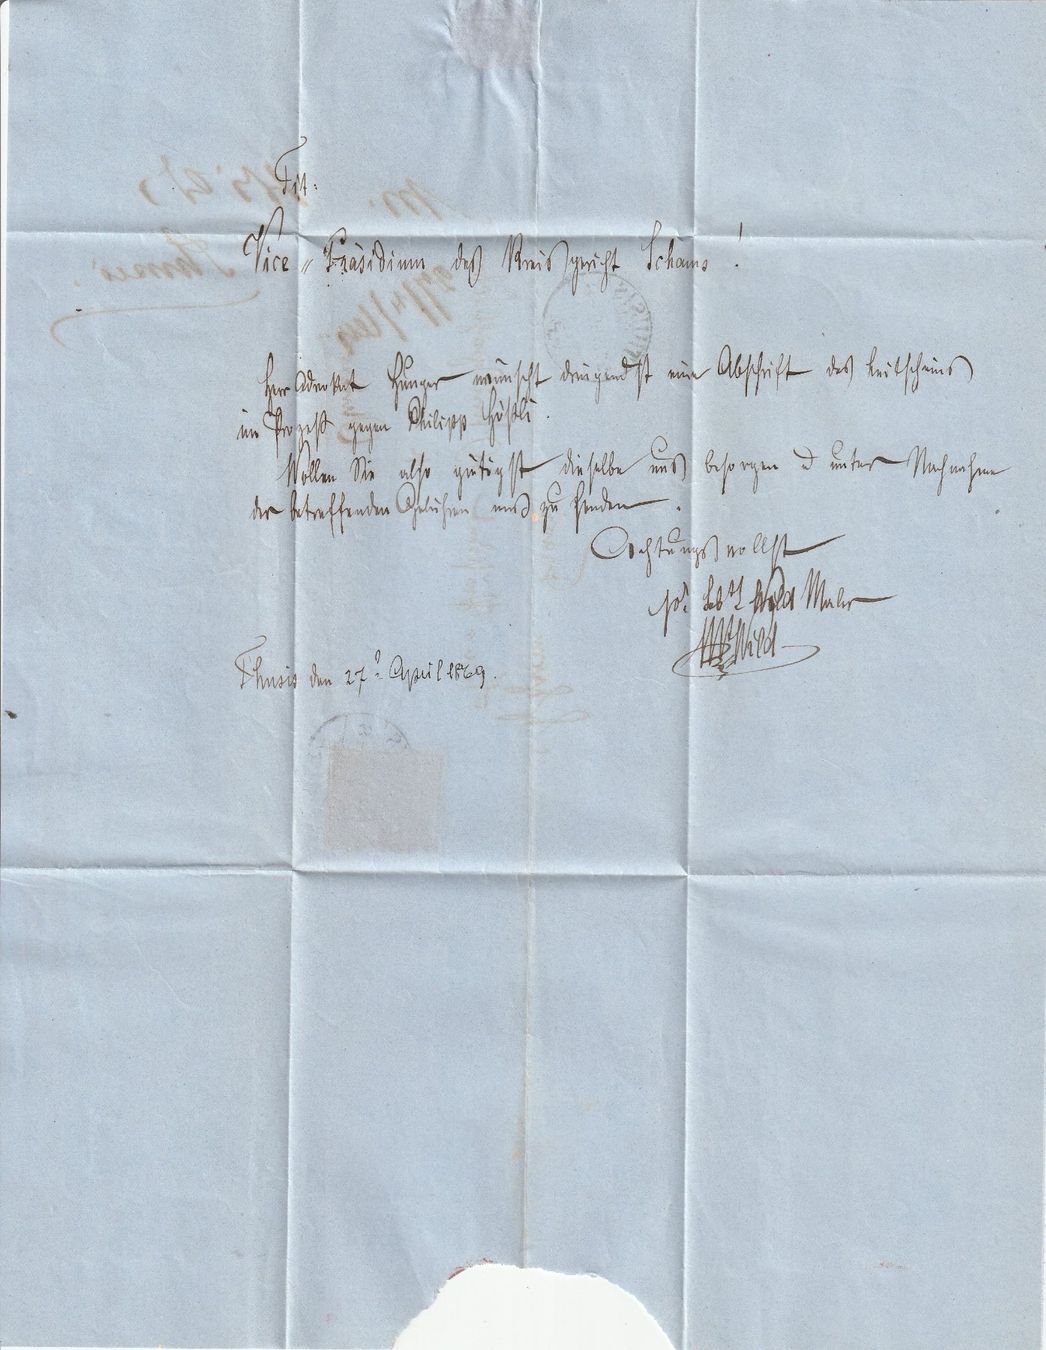 Tit:
Vice = Präsidium des Kreisgericht Schams!
Herr Advokat Hunger wünscht dringendst eine Abschrift des Leitscheins
im Prozeß gegen Philipp Hößli.
Wollen Sie also gütigst dieselbe uns besorgen & unter Nachnahme
der betreffenden Gebühren uns zu senden.
Achtungsvollst
Maler
Wild
Thusis den 27t April 1869.